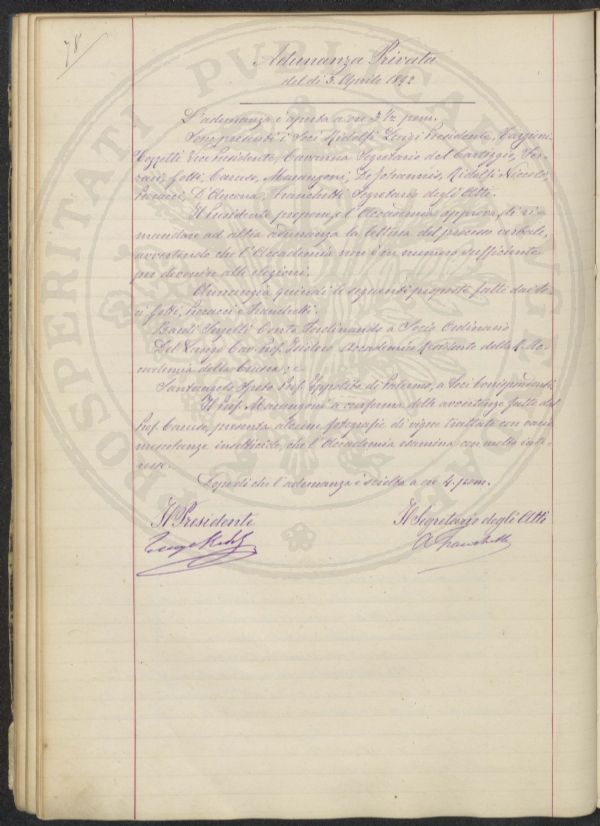 78
Adunanza Privata
del dì 3. Aprile 1892
L'adunanza è aperta a ore 3 1/2 pom.
Sono presenti i Soci Ridolfi Luigi Presidente, Targioni
Tozzetti Vice Presidente, Caruana Segretario del Carteggio, Fer-
rari, Caruso, Marangoni, De Johannis, Ridolfi Niccolò,
Pucacci, D'Ancona, Franchetti Segretario degli Atti.
Il Presidente propone, e l'Accademia approva, di ri-
mandare ad altra adunanza la lettura del processo verbale,
avvertendo che l'Accademia non è in numero sufficiente
per divenire alle elezioni.
Annunzia quindi le seguenti proposte fatte dai So-
ci Pucacci e Franchetti.
Conte Ferdinando a Socio Ordinario
Del Lungo Cav. Prof. Isidoro Accademico Residente della R. Ac-
cademia della Crusca; e
Santangelo Spoto Prof. Ippolito di Palermo, a Soci Corrispondenti
Il Prof. Marangoni a conferma delle avvertenze fatte dal
Prof. Caruso, presenta alcune fotografie di vigne trattate con varie
insetticide, che l'Accademia esamina con molto inte-
resse.
Dopo di che l'adunanza è sciolta a ore 4. pom.
Il Presidente
Il Segretario degli Atti
Luigi Ridolfi
A Franchetti
PROSPERITATI PUBLICAE AUGENDAE